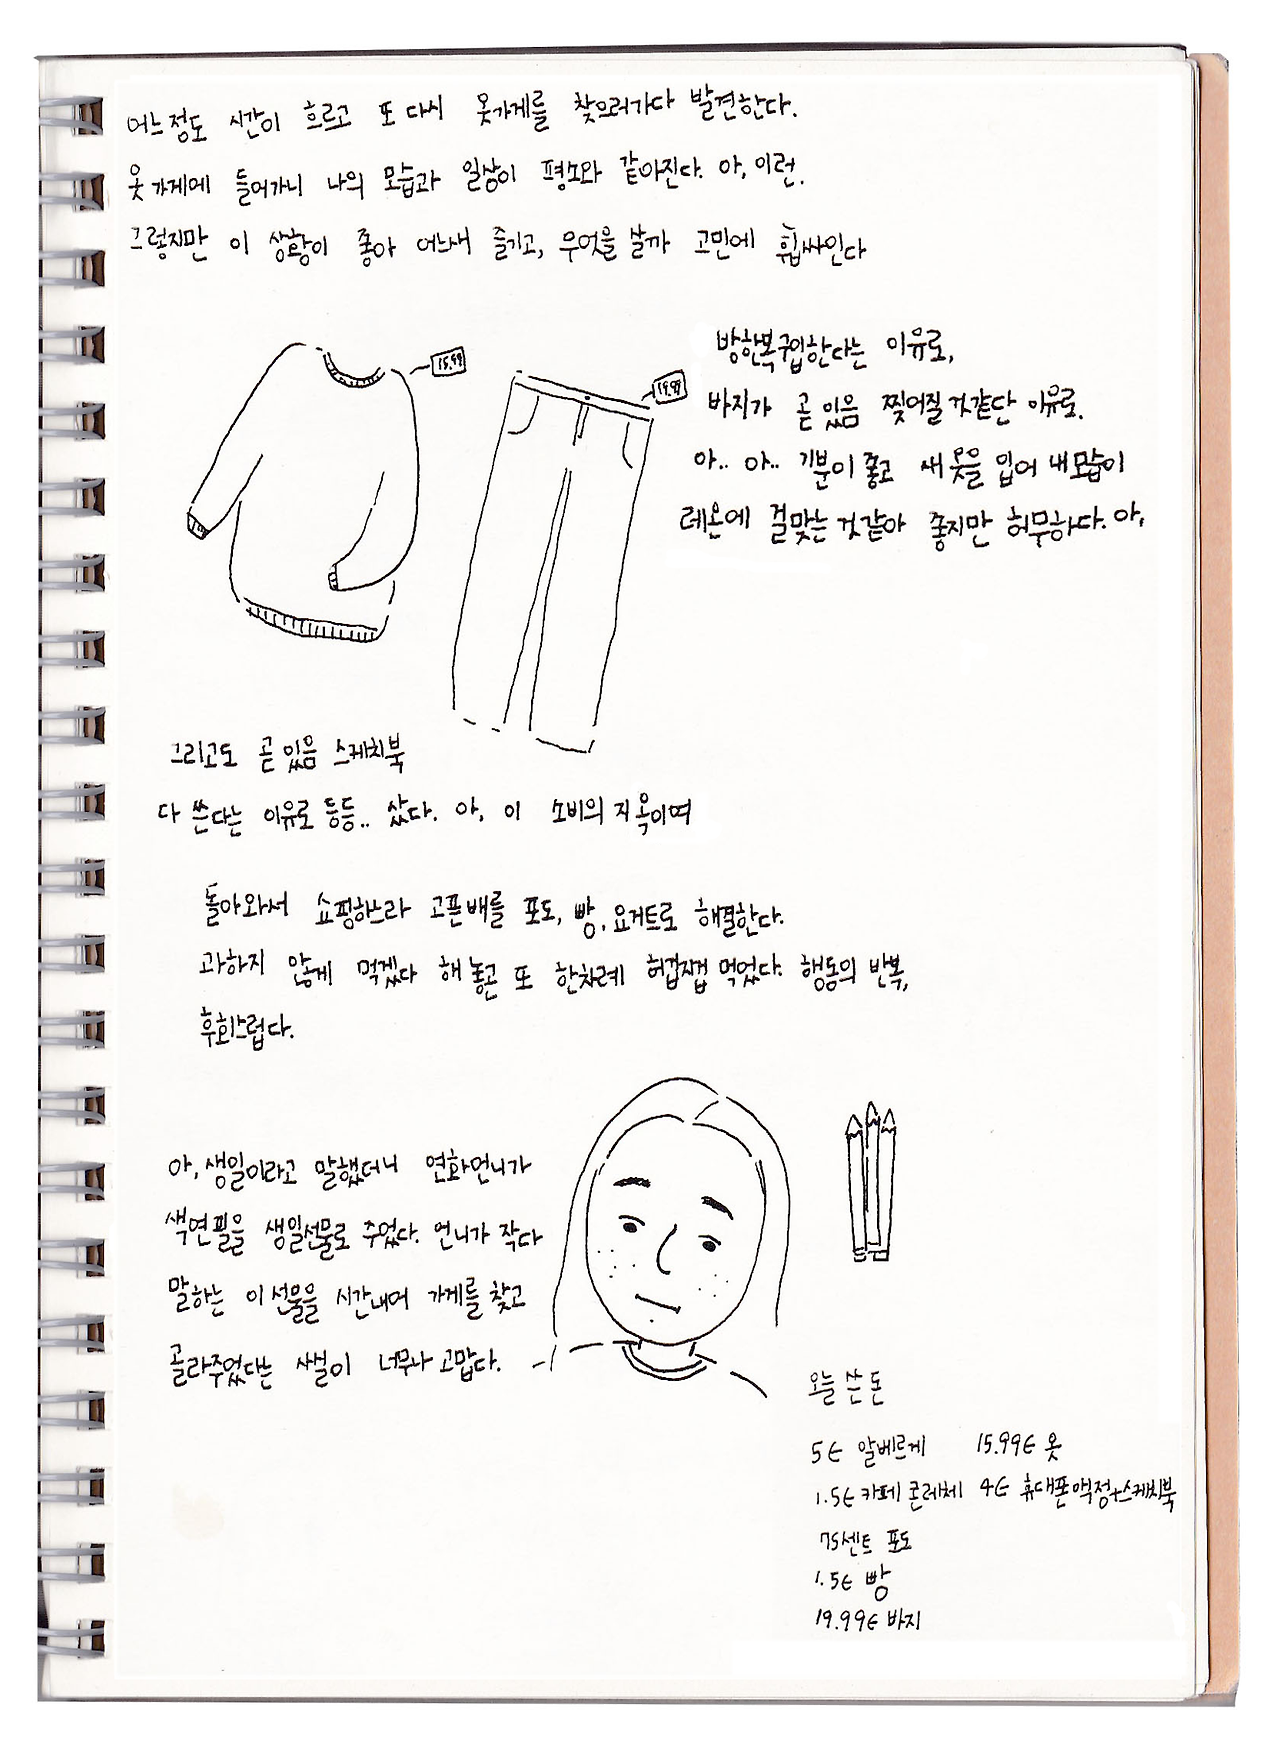 어느정도 시간이 흐르고 또 다시 옷가게를 찾으러가다 발견한다.
옷 가게에 들어가니 나의 모습과 일상이 평소와 같아진다. 아, 이런.
그렇지만 이 상황이 좋아 어느새 즐기고, 무엇을 살까 고민에 휩싸인다
15.99
19.99
방한복구입한다는 이유로,
바지가 곧 있음 찢어질 것같단 이유로.
아.. 아.. 기분이 좋고 새 옷을 입어 내모습이
레온에 걸맞는 것같아 좋지만 허무하다. 아,
그리고도 곧 있음 스케치북
다 쓴다는 이유로 등등.. 샀다. 아, 이 소비의 지옥이여
돌아와서 쇼핑하느라 고픈배를 포도, 빵, 요거트로 해결한다.
과하지 않게 먹겠다 해 놓곤 또 한차례 허겁지겁 먹었다. 행동의 반복,
후회스럽다.
아, 생일이라고 말했더니 연화언니가
색연필을 생일선물로 주었다. 언니가 작다
말하는 이 선물을 시간내어 가게를 찾고
골라주었다는 사실이 너무나 고맙다.
오늘 쓴 돈
5€ 알베르게 15.99€ 옷
1.5€ 카페 콘레체 4€ 휴대폰액정+스케치북
75센트 포도
1.5€ 빵
19.99€ 바지